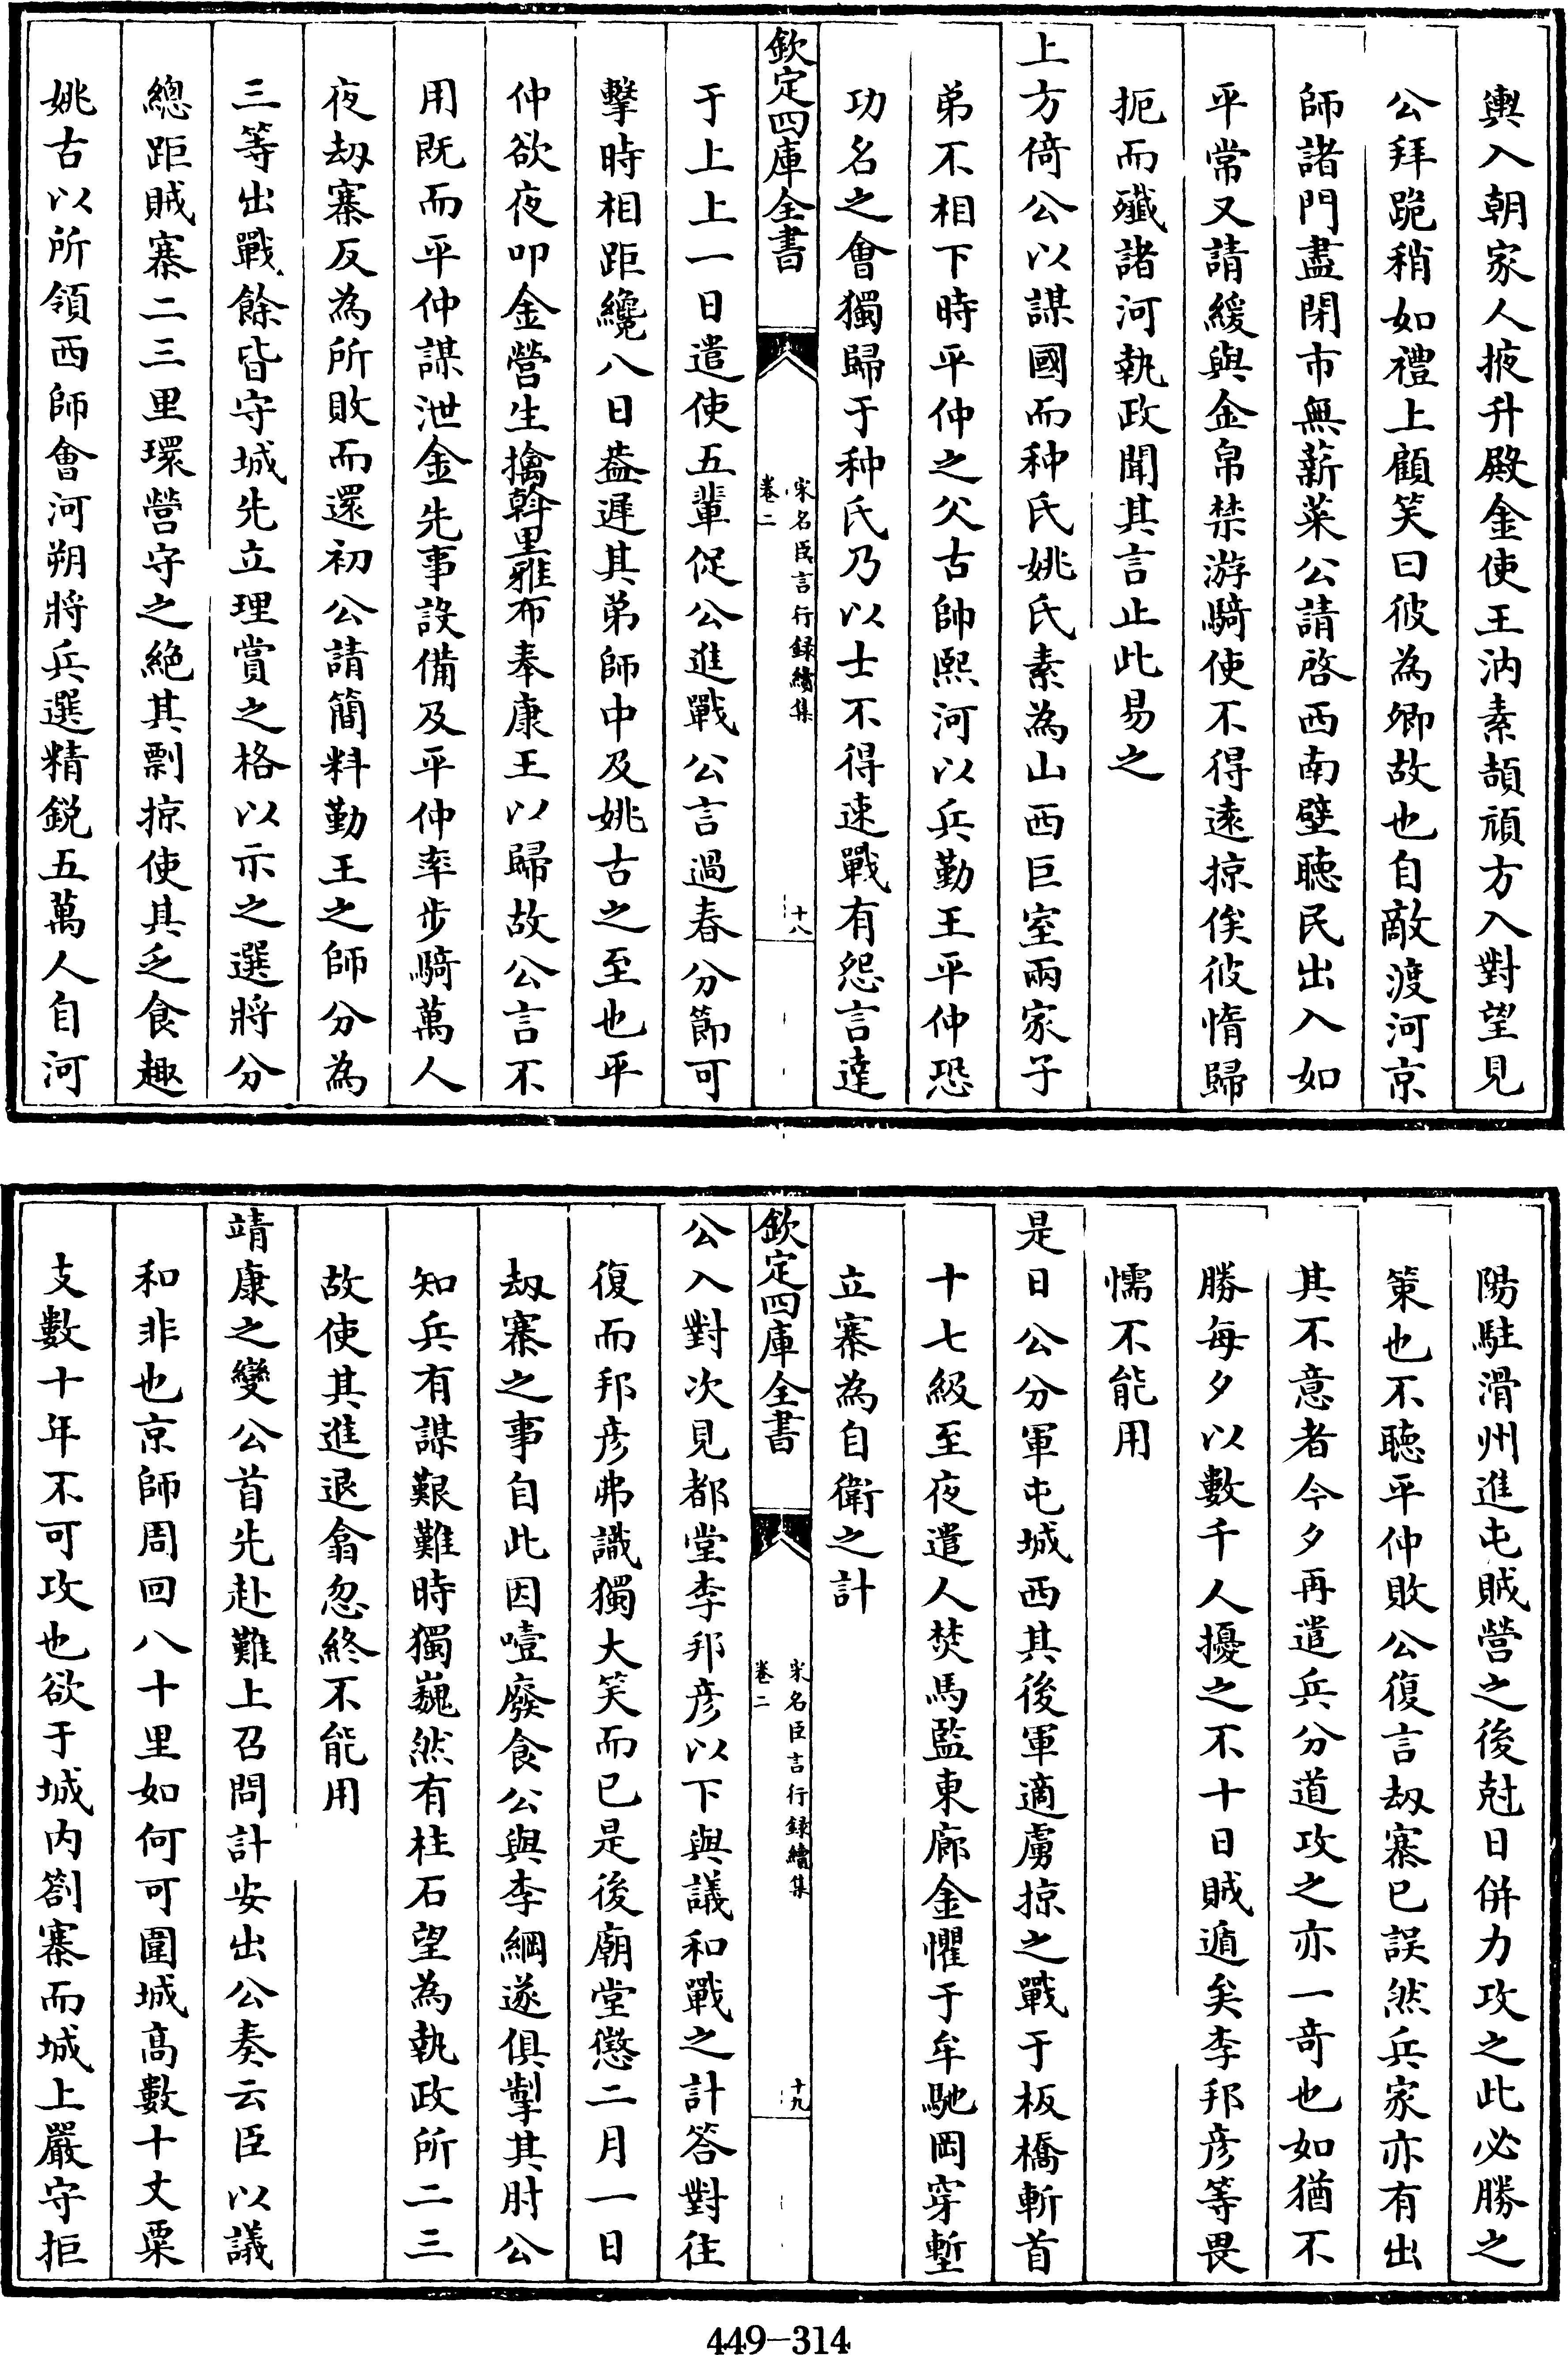 輿入朝家人掖升殿金使王汭素頡頏方入對望見
公拜跪稍如禮上顧笑曰彼為卿故也自敵渡河京
師諸門盡閉市無薪菜公請啓西南壁聴民出入如
平常又請緩與金帛禁游騎使不得逺掠俟彼惰歸
扼而殲諸河執政聞其言止此易之
上方倚公以謀國而种氏姚氏素為山西巨室兩家子
弟不相下時平仲之父古帥熙河以兵勤王平仲恐
功名之會獨歸于种氏乃以士不得速戰有怨言達
欽定四庫全書
宋名臣言行録續集
卷二
十八
于上上一日遣使五輩促公進戰公言過春分節可
擊時相距纔八日葢遲其弟師中及姚古之至也平
仲欲夜叩金營生擒斡里雅布奉康王以歸故公言不
用既而平仲謀泄金先事設備及平仲率步騎萬人
夜刼寨反為所敗而還初公請簡料勤王之師分為
三等出戰餘皆守城先立理賞之格以示之選將分
總距賊寨二三里環營守之絶其剽掠使其乏食趣
姚古以所領西師會河朔將兵選精鋭五萬人自河
陽駐滑州進屯賊營之後尅日併力攻之此必勝之
策也不聴平仲敗公復言刼寨已誤然兵家亦有出
其不意者今夕再遣兵分道攻之亦一竒也如猶不
勝每夕以數千人擾之不十日賊遁矣李邦彦等畏
懦不能用
是日公分軍屯城西其後軍適虜掠之戰于板橋斬首
十七級至夜遣人焚馬監東廊金懼于牟馳岡穿塹
立寨為自衛之計
欽定四庫全書
宋名臣言行録續集
卷二
十九
公入對次見都堂李邦彦以下與議和戰之計答對往
復而邦彦弗識獨大笑而已是後廟堂懲二月一日
刼寨之事自此因噎廢食公與李綱遂俱掣其肘公
知兵有謀艱難時獨巍然有柱石望為執政所二三
故使其進退翕忽終不能用
靖康之變公首先赴難上召問計安出公奏云臣以議
和非也京師周回八十里如何可圍城髙數十丈粟
支數十年不可攻也欲于城内劄寨而城上嚴守拒
449-314